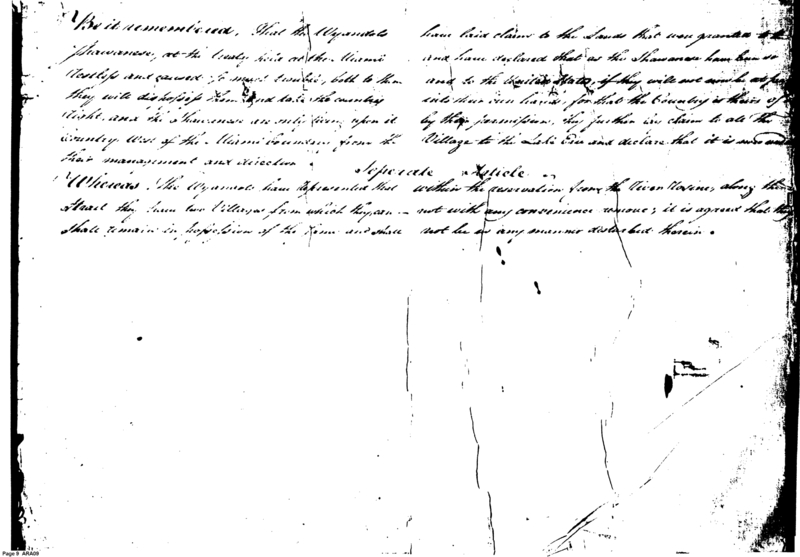 Be it remembered, That the Wyandots have laid claim to the Lands that were granted to the
Shawanese, at the treaty held at the Miami and have declared that as the Shawanese have been so
restless and caused so much trouble, both to them and to the United States, if they will not now be at
they will dispossess them and take the country into their own hands, for that the Country is theirs of
Right, and the Shawanese are only living upon it by their permission. They further lay claim to all the
Country West of the Miami boundary from the Village to the Lake Erie and declare that it is now under
their management and direction
Seperate Article
Whereas The Wyandots have represented that within the reservation from the River Rosine, along the
Strait they have two Villages from which they can- not with any convenience remove; it is agreed that they
shall remain in possession of the same and shall not be in any manner disturbed therein.
Page 9 ARA09